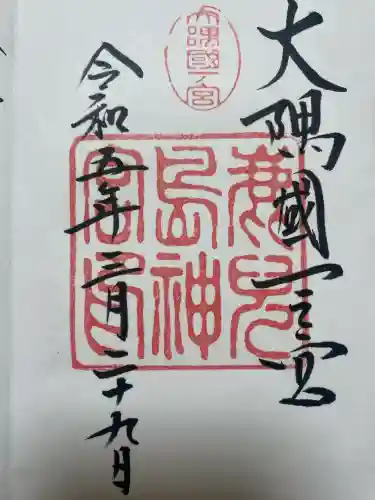 大隅國一之宮
大隅國一ノ宮
鹿兒島神宮
令和五年三月二十九月